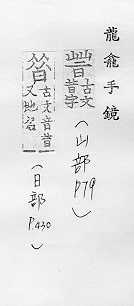 龍龕手鏡
古文
昔字
(山部 P79)
古文音昔
又地名
(日部 P.430)